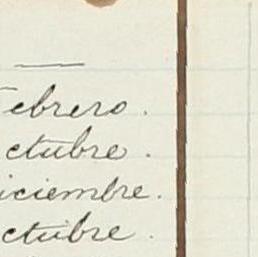 Febrero.
ctubre.
iciembre.
ctubre.